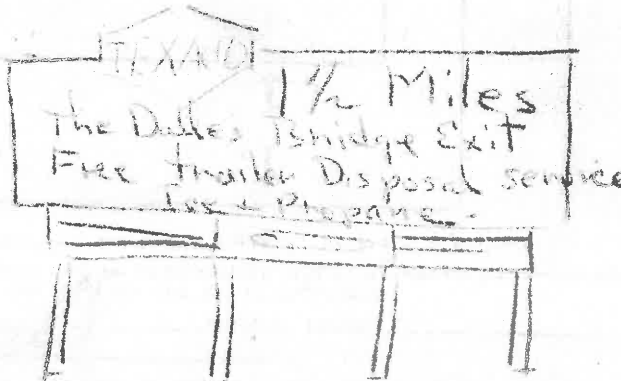 TEXACO
1 1/2 Miles
The Dalles Bridge Exit
Free trailer Disposal service
Ice + Propane